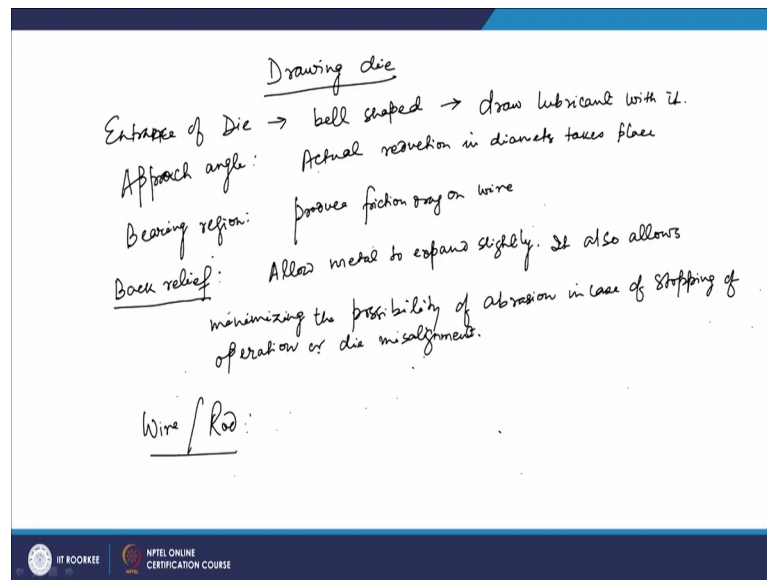 Drawing die
Entrance of Die → bell shaped → draw lubricant with it.
Approach angle: Actual reduction in diameter takes place
Bearing region: produce friction drag on wire
Back relief: Allow metal to expand slightly. It also allows
minimizing the possibility of abrasion in case of stopping of
operation or die misalignment.
Wire / Rod:
IIT ROORKEE
NPTEL ONLINE
CERTIFICATION COURSE
NPTEL